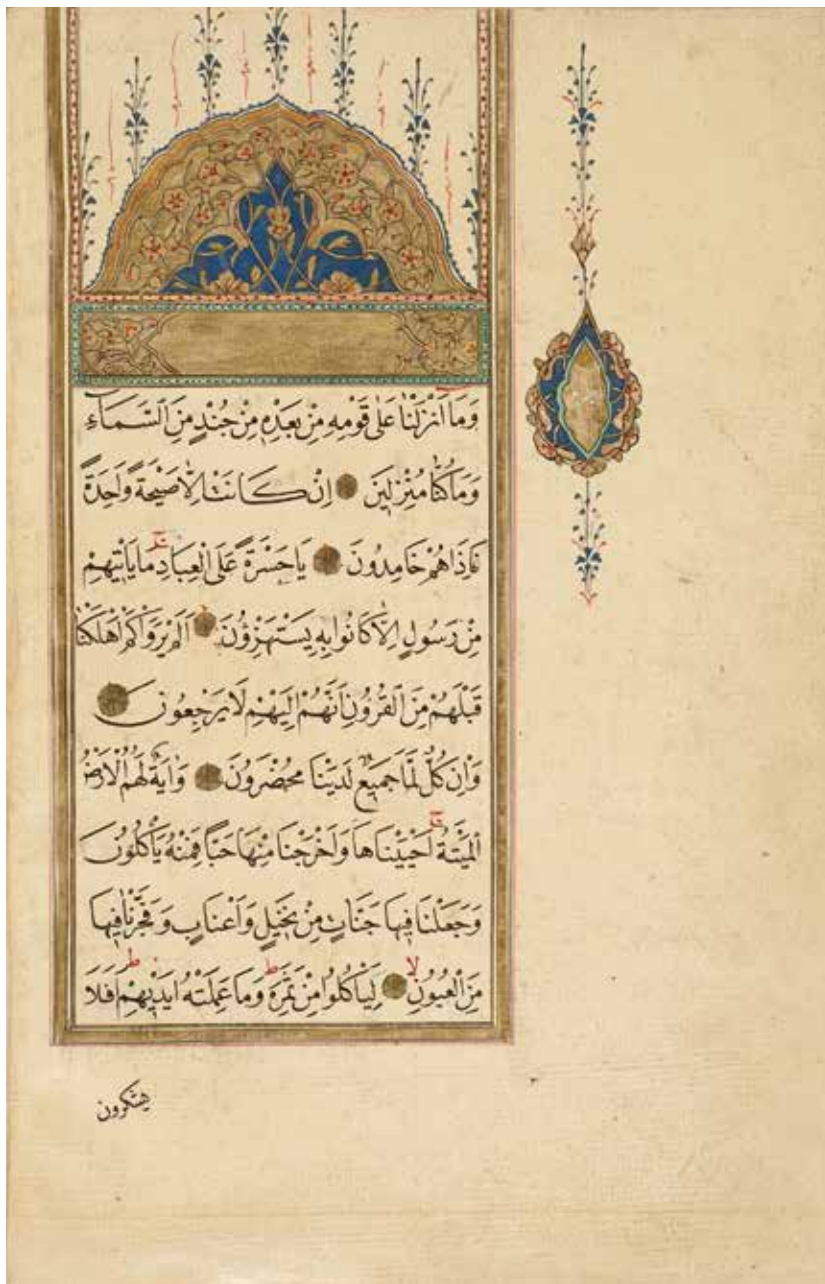 وَمَا اَنْزَلْنَا عَلٰى قَوْمِهِ مِنْ بَعْدِهِ مِنْ جُنْدٍ مِنَ السَّمَاءِ
وَمَا كُنَّا مُنْزِلِينَ اِنْ كَانَتْ اِلَّا صَيْحَةً وَاحِدَةً
فَاِذَا هُمْ خَامِدُونَ يَا حَسْرَةً عَلَى الْعِبَادِ مَا يَأْتِيهِمْ
مِنْ رَسُولٍ اِلَّا كَانُوا بِهِ يَسْتَهْزِؤُنَ اَلَمْ يَرَوْا كَمْ اَهْلَكْنَا
قَبْلَهُمْ مِنَ الْقُرُونِ اَنَّهُمْ اِلَيْهِمْ لَا يَرْجِعُونَ
وَاِنْ كُلٌّ لَمَّا جَمِيعٌ لَدَيْنَا مُحْضَرُونَ وَاٰيَةٌ لَهُمُ الْاَرْضُ
الْمَيْتَةُ اَحْيَيْنَاهَا وَاَخْرَجْنَا مِنْهَا حَبًّا فَمِنْهُ يَأْكُلُونَ
وَجَعَلْنَا فِيهَا جَنَّاتٍ مِنْ نَخِيلٍ وَاَعْنَابٍ وَفَجَّرْنَا فِيهَا
مِنَ الْعُيُونِ لا لِيَأْكُلُوا مِنْ ثَمَرِهِ ط وَمَا عَمِلَتْهُ اَيْدِيهِمْ ط اَفَلَا
يشكرون